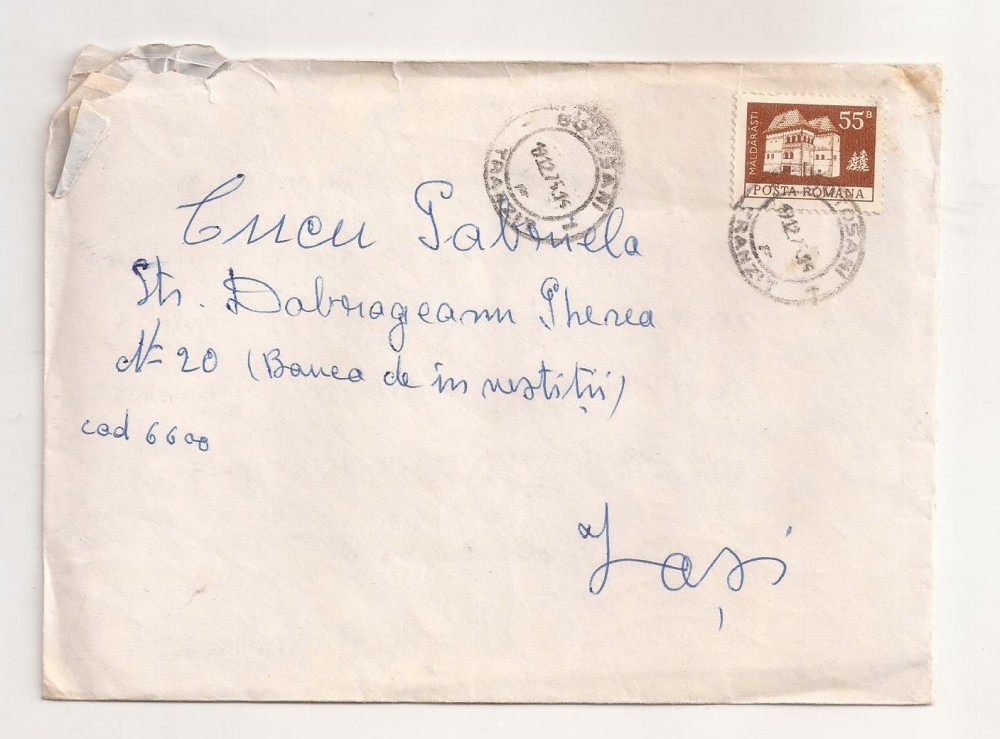 BOTOȘANI
TRANZIT
19.12.75.14
MALDARASTI
55 B
POSTA ROMANA
BOTOȘANI
TRANZIT
19.12.75.14
Cucu Gabriela
Str. Dobrogeanu Gherea
Nr 20 (Banca de investiții)
cod 6600
Iași